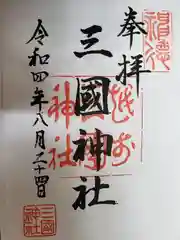 奉拝
三國神社
越前
神社
令和四年八月二十四日
三國
神社